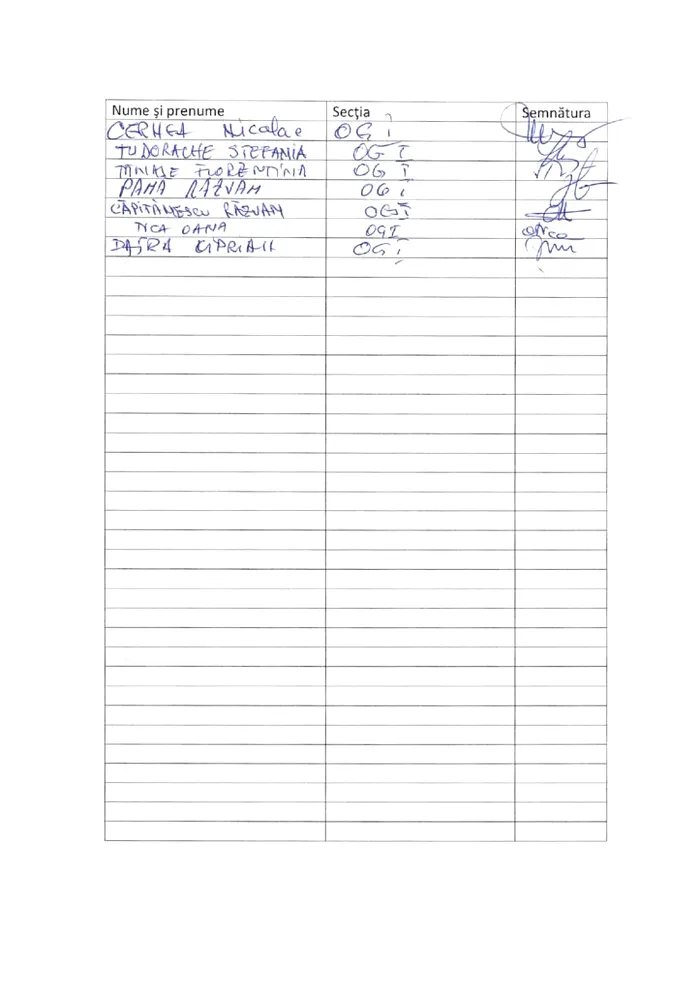 Nume și prenume Secția Semnătura
CERHEA Nicolae OG I
TUDORACHE STEFANIA OG I
FLORENTINA OG I
PANA RĂZVAN OG I
CĂPITĂNESCU RĂZVAN OG I
OANA OG I
CIPRIAN OG I